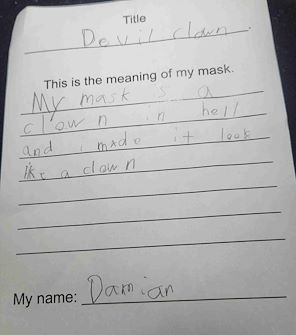 Title
Devil clown.
This is the meaning of my mask.
My mask is a
clown in hell
and i made it look
like a clown
My name: Damian